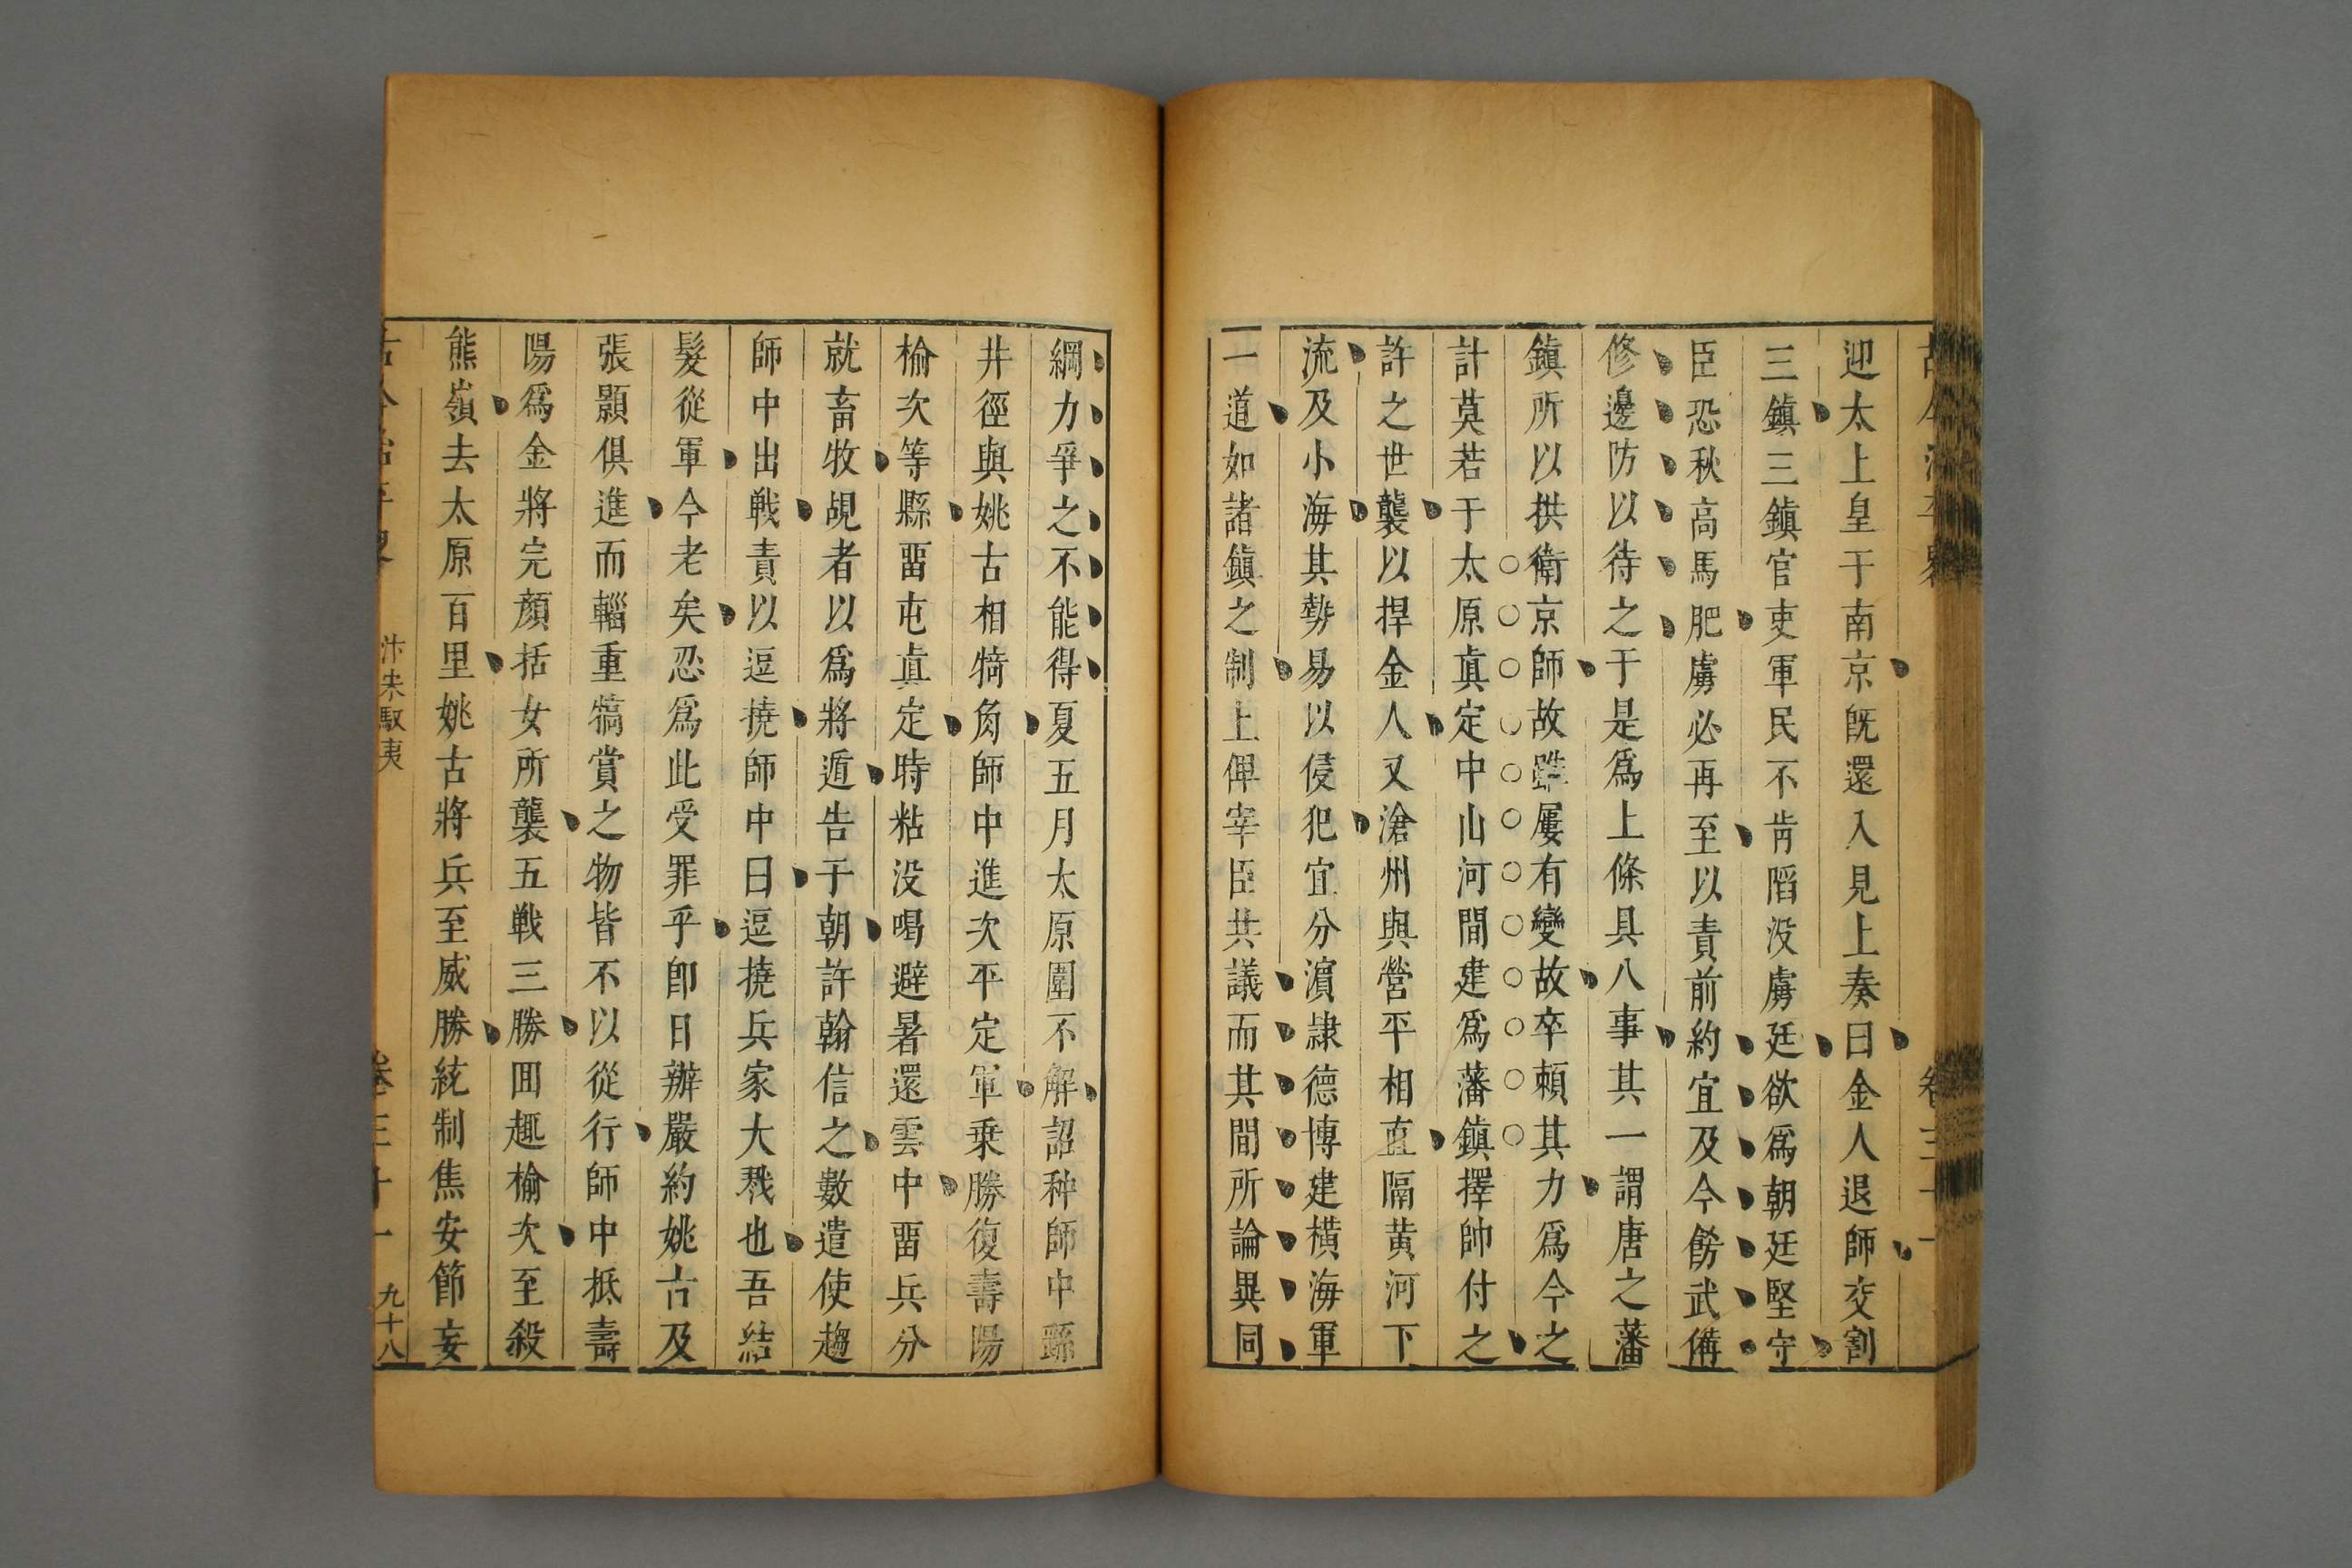 迎太上皇于南京旣還入見上奏曰金人退師交割
三鎮三鎮官吏軍民不肯陷没虜廷欲爲朝廷堅守
臣恐秋高馬肥虜必再至以責前約宜及今飭武備
修邊防以待之于是爲上條具八事其一謂唐之藩
鎮所以拱衛京師故雖屢有變故卒賴其力爲今之
計莫若于太原眞定中山河間建爲藩鎮擇帥付之
許之世襲以捍金人又滄州與營平相直隔黄河下
流及小海其勢易以侵犯宜分濵隷德博建横海軍
一道如諸鎮之制上俾宰臣共議而其間所論異同
綱力爭之不能得夏五月太原圍不解詔种師中繇
井徑與姚古相犄角師中進次平定軍乗勝復壽陽
榆次等縣畱屯眞定時粘没喝避暑還雲中畱兵分
就畜牧覘者以爲將遁告于朝許翰信之數遣使趨
師中出戰責以逗撓師中曰逗撓兵家大戮也吾結
髮從軍今老矣忍爲此受罪乎卽日辦嚴約姚古及
張顥俱進而輜重犒賞之物皆不以從行師中抵壽
陽爲金將完顏括女所襲五戰三勝囬趣榆次至殺
熊嶺去太原百里姚古將兵至威勝統制焦安節妄
汴宋馭夷
卷三十一
九十八